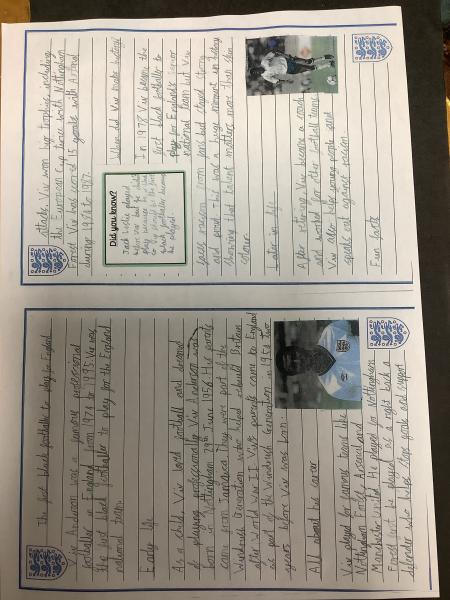 The first black footballer to play for England
Viv Anderson was a famous professional
footballer in England from 1974 to 1995 Viv was
the first black footballer to play for the England
national team.
Early life
As a child, Viv loved football and dreamed
of playing professionally Viv Anderson was
born in Nottingham 29th June 1956 His parents
came from Jamaica They were part of the
Windrush Generation who helped rebuild Britain
after World War II Viv's parents came to England
as part of the Windrush Generation in 1954 two
years before Viv was born.
All about his career
Viv played for famous teams like
Nottingham Forest Arsenal and
Manchester United He played for Nottingham
Forest first he played as a right back a
defender who helps stop goals and support
attacks. Viv won big trophies including
the European Cup twice with Nottingham
Forest Viv was scored 15 goals with Arsenal
during 1974 to 1987.
Did you know?
Jack Leslie played
where did Viv make history?
In 1978 Viv became the
first black footballer to
play for England's senior
national team but Viv
faces racism from fans but stayed strong
and proud This was a huge moment in history
showing that talent matters more than skin
colour.
Later in life
After retiring Viv became a coach
and worked for other football teams
Viv also helps young people and
speaks out against racism
Fun facts